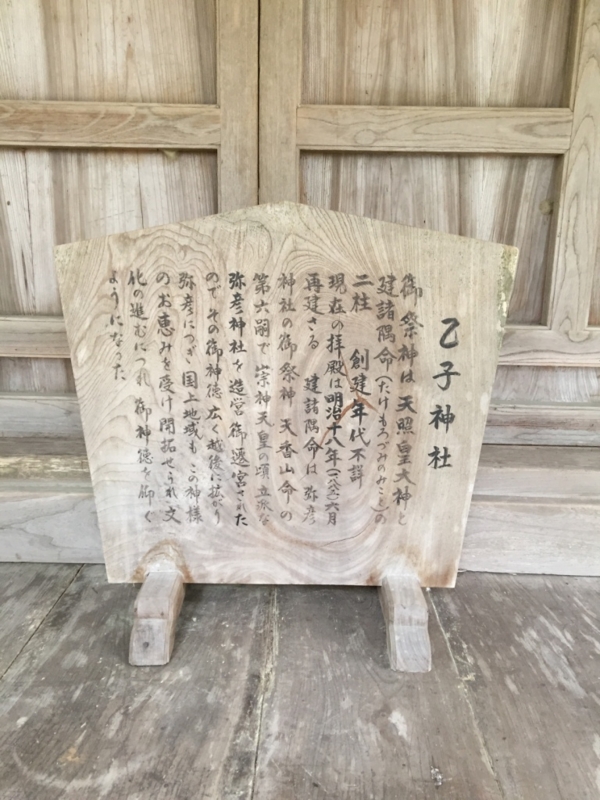 乙子神社
御祭神は天照皇大神と
建諸隅命(たけもろづみのみこと)の
二柱 創建年代不詳
現在の拝殿は明治十八年(一八八五)六月
再建さる 建諸隅命は弥彦
神社の御祭神 天香山命の
第六嗣で 崇神天皇の頃立派な
弥彦神社を造営御遷宮された
のでその御神徳広く越後に拡がり
弥彦につぎ国上地域もこの神様
のお恵みを受け開拓せられ文
化の進むにつれ御神徳を仰ぐ
ようになった